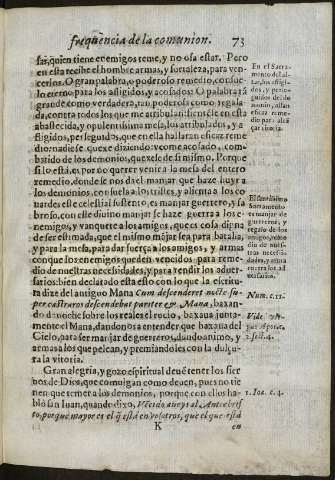 frequencia de la comunion. 73
far, quien tiene enemigos teme, y no osa estar. Pero
en esta recibe el hombre armas, y fortaleza, para ven-
cerlos. O gran palabra, o poderoso remedio, consue-
lo eterno para los afligidos, y acosados! O palabra tã
grande como verdadera, tan poderosa como regala
da, contra todos los que me atribularẽ sientese en esta
abastecida, y opulentissima mesa, los atribulados, y a-
fligidos, perseguidos, que en ella hallaran escierr reme
dio: nadie se quexe diziendo: veome acosado, com-
batido de los demonios, quexese de si mismo. Porque
si lo està, es por no querer venir a la mesa del entero
remedio, donde se nos da el manjar que haze huyr a
los demonios, consuela a los tristes, y alienta a los co
bardes este celestial sustento, es manjar guerrero, y sa
broso, con este diuino manjar se haze guerra a los e-
nemigos, y vanquete a los amigos, que es cosa digna
de ser estimada, que el mismo mãjar sea para batalla,
y para la mesa, para dar fuerça a los amigos, y armas
con que los enemigos queden vencidos, para reme-
dio de nuestras necessidades, y para rendir los aduer-
sarios: bien declarado esta esto con lo que la escritu-
ra dize del antiguo Mana Cum descenderet nocte su-
per castra ros descendebat pariter & Mana, baxan-
do da noche sobre los reales el rocio, baxaua junta-
mente el Mana, dandonos a entender que baxaua del
Cielo, para ser manjar de guerreros, dandoanimo, y
armas a los que pelean, y premiandoles con la dulçu-
ra la vitoria.
Gran alegria, y gozo espiritual deue tener los sier
uos de Dios, que comulgan como deuen, pues no tie
nen que temer a los demonios, porque con ellos ha-
blò san Iuan, quando dixo, Vẽcido aueys al Antechris
to, porque mayor es el q̃ està en vosotros, que el que està
K en
En el Sacra-
mento del al-
tar, los afligi-
dos, y perse-
guidos del de
monio, allan
eficaz reme-
dio para alcã
çar vitoria.
El Santissimo
Sacramento
es manjar de
guerreros, y
regalo de los
amigos, reme-
dio de nues-
tras necessi-
dades, y arma
contra los ad
uersarios.
Num. c. 11.
Vide
Apoca.
2. fect. 4.
1. Ioa. c. 4.